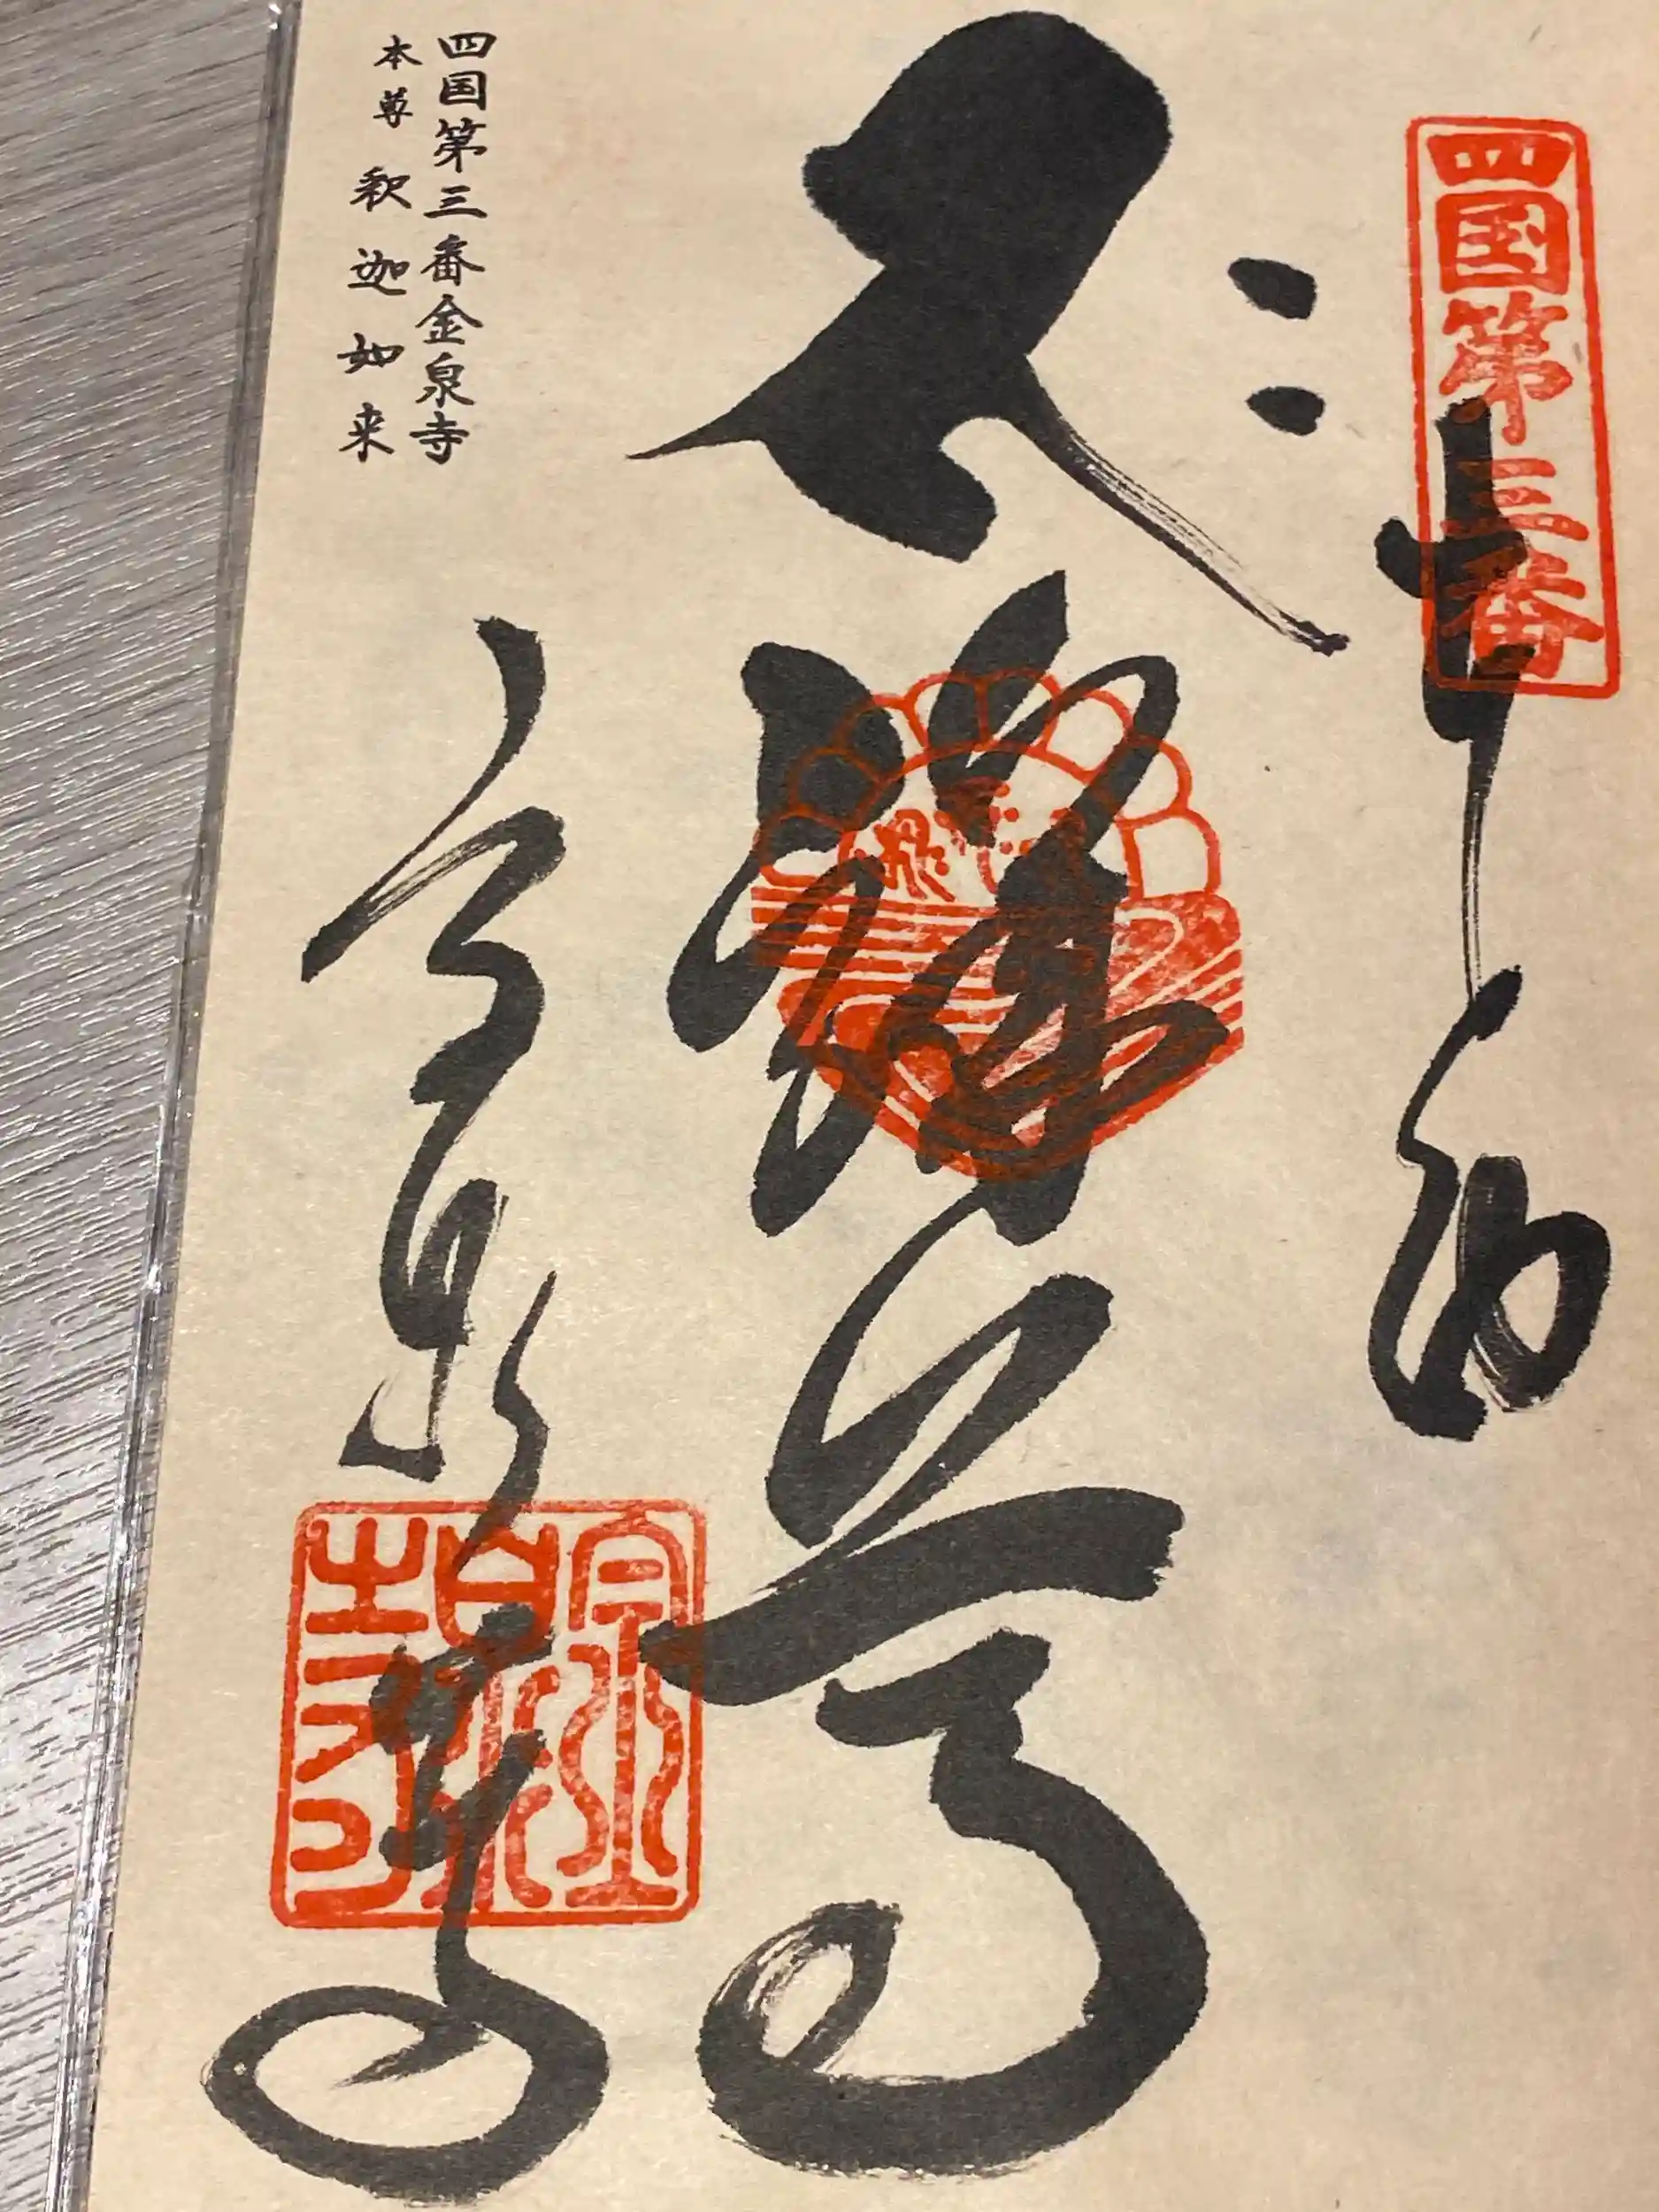 四国第三番
奉納
金泉寺
金泉寺
四国第三番金泉寺
本尊 釈迦如来